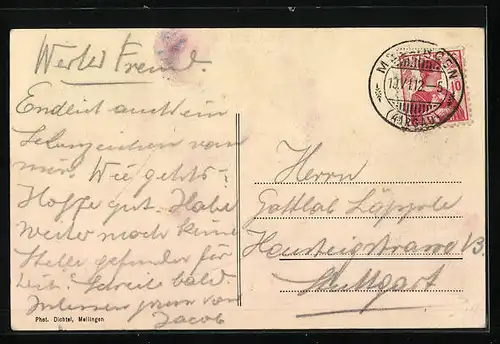 Werter Freund.
Endlich auch ein
Lebenszeichen von
mir. Wie gehts?
Hoffe gut. Habe
weiter noch keine
Stelle gefunden für
Dich. Schreibe bald.
von
Jacob
Phot. Dichtel, Mellingen
MELLINGEN
(AARGAU)
10
Herrn
Gottlob Läpple
Stuttgart